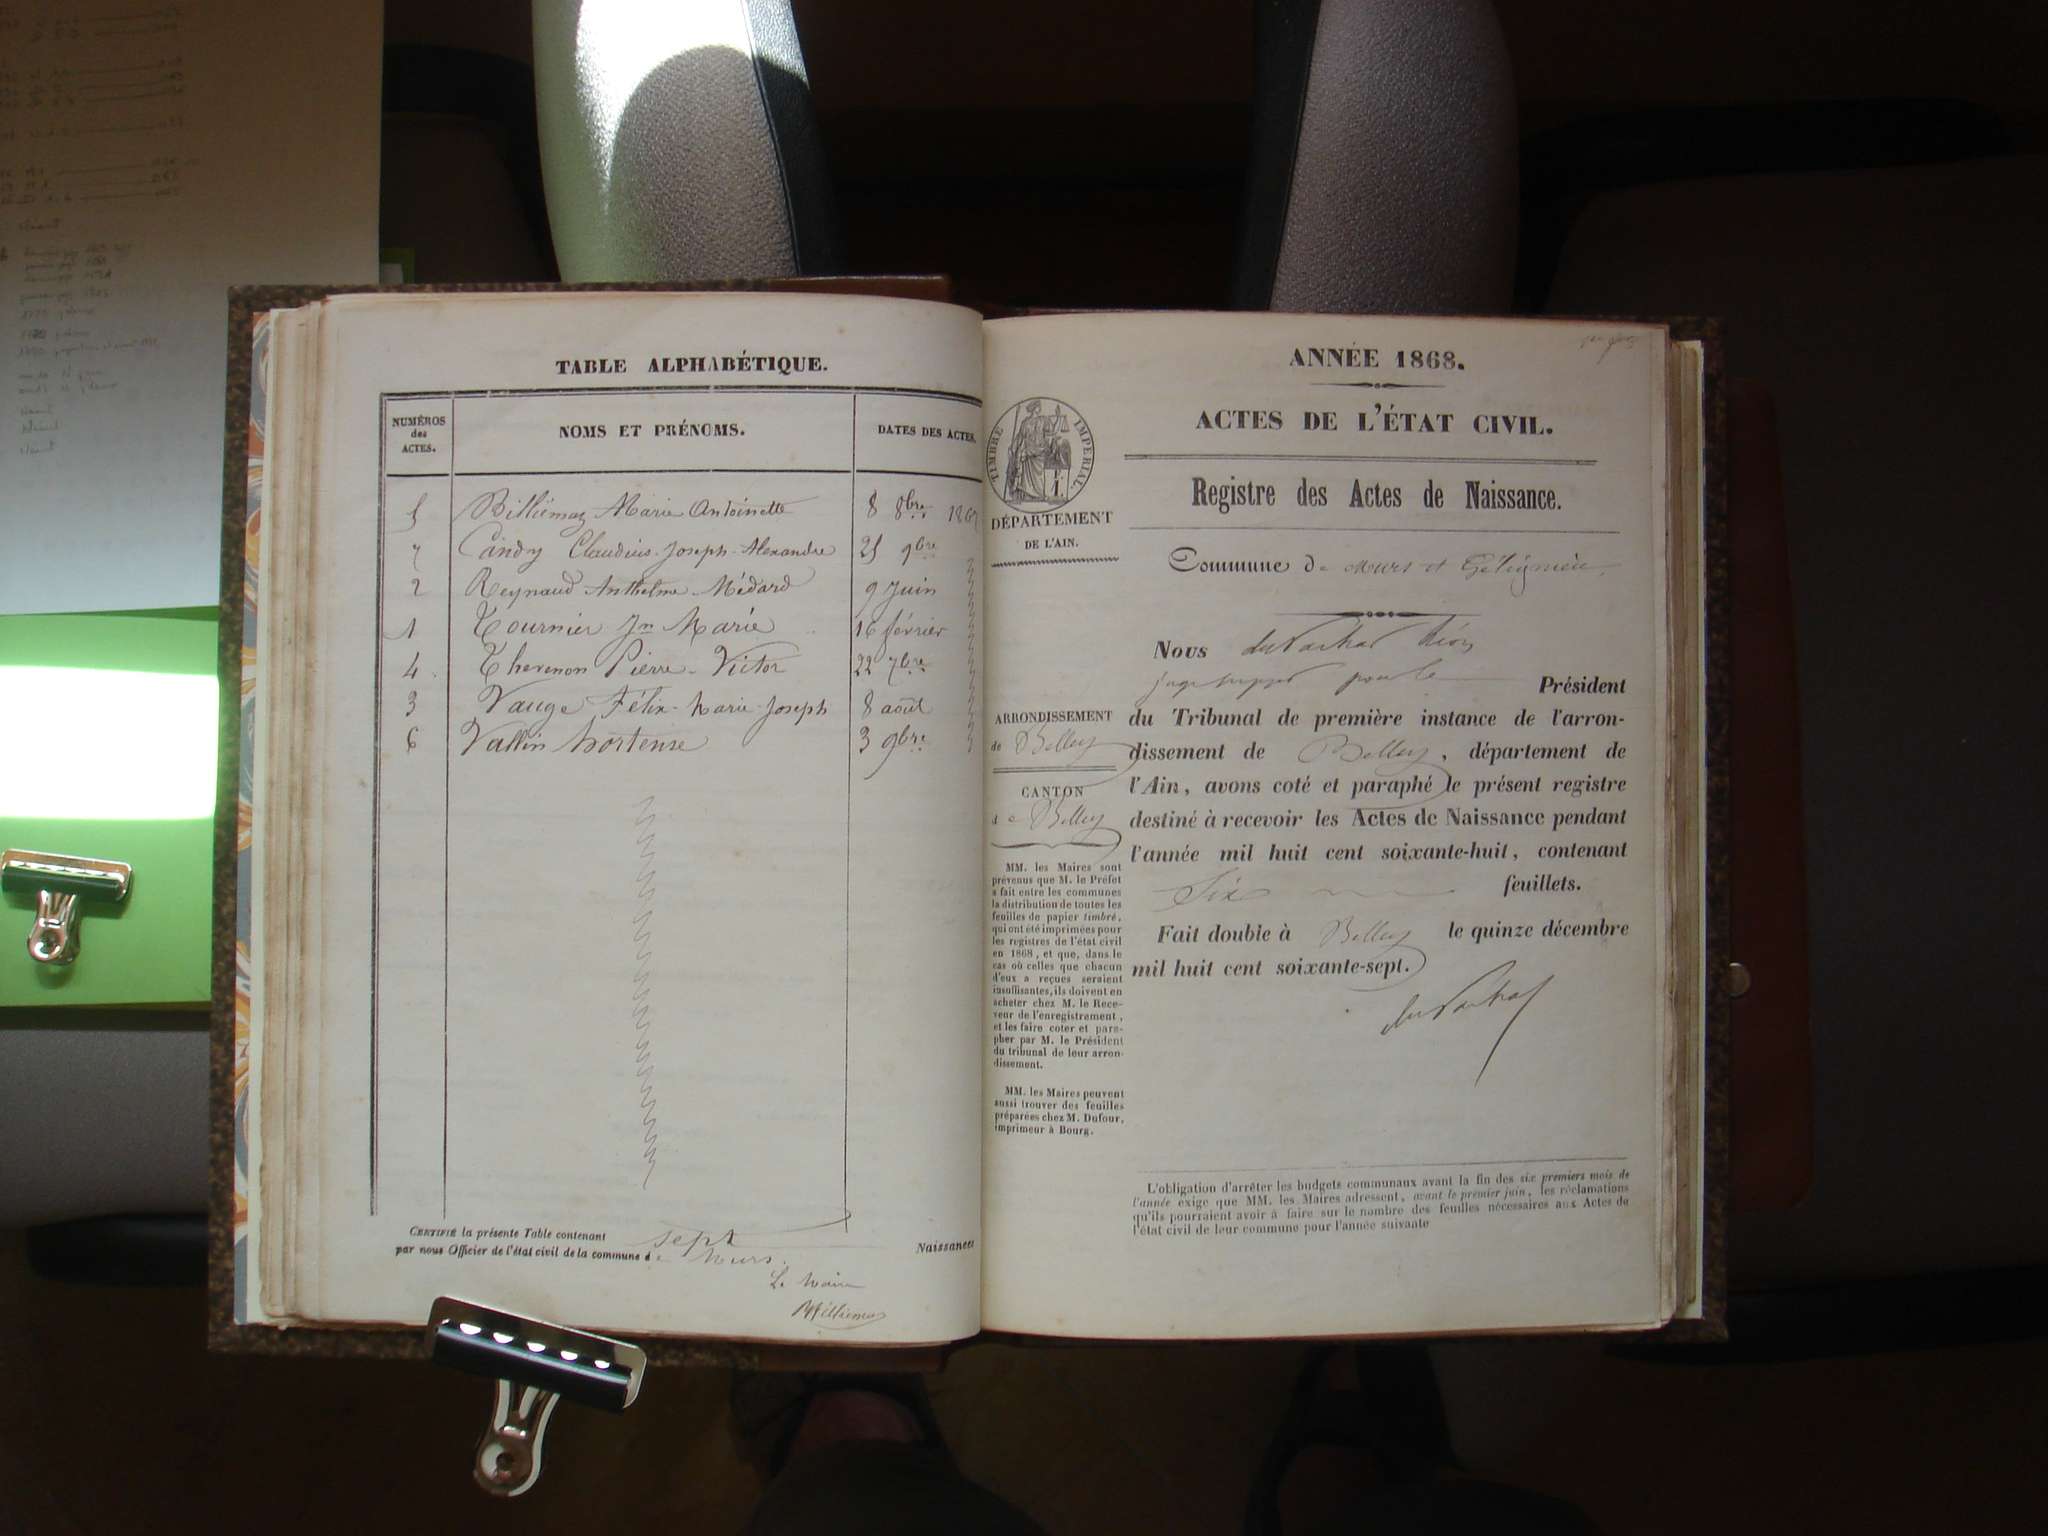 TABLE ALPHABÉTIQUE.
NUMÉROS
des
ACTES.
NOMS ET PRÉNOMS.
DATES DES ACTES.
5 Billiemaz Marie Antoinette 8 8bre 1867
7 Candy Claudius-Joseph-Alexandre 25 9bre
2 Reynaud Anthelme Médard 9 Juin
1 Tournier Jn Marie 16 février
4 Thevenon Pierre-Victor 22 7bre
3 Vauge Félix-Marie-Joseph 8 août
6 Vallin hortense 3 9bre
CERTIFIÉ la présente Table contenant sept Naissances
par nous Officier de l'état civil de la commune de Murs.
Le Maire
Billiemaz
ANNÉE 1868.
ACTES DE L'ÉTAT CIVIL.
Registre des Actes de Naissance.
TIMBRE IMPERIAL.
DÉPARTEMENT
DE L'AIN.
Commune de Murs et Gélignieux
Nous
pour le Président
du Tribunal de première instance de l'arron-
dissement de Belley, département de
l'Ain, avons coté et paraphé le présent registre
destiné à recevoir les Actes de Naissance pendant
l'année mil huit cent soixante-huit, contenant
Six feuillets.
Fait double à Belley le quinze décembre
mil huit cent soixante-sept.
ARRONDISSEMENT
de Belley
CANTON
de Belley
MM. les Maires sont
prévenus que M. le Préfet
a fait entre les communes
la distribution de toutes les
feuilles de papier timbré,
qui ont été imprimées pour
les registres de l'état civil
en 1868, et que, dans le
cas où celles que chacun
d'eux a reçues seraient
insuffisantes, ils doivent en
acheter chez M. le Rece-
veur de l'enregistrement,
et les faire coter et para-
pher par M. le Président
du tribunal de leur arron-
dissement.
MM. les Maires peuvent
aussi trouver des feuilles
préparées chez M. Dufour,
imprimeur à Bourg.
L'obligation d'arrêter les budgets communaux avant la fin des six premiers mois de
l'année exige que MM. les Maires adressent, avant le premier juin, les réclamations
qu'ils pourraient avoir à faire sur le nombre des feuilles nécessaires aux Actes de
l'état civil de leur commune pour l'année suivante